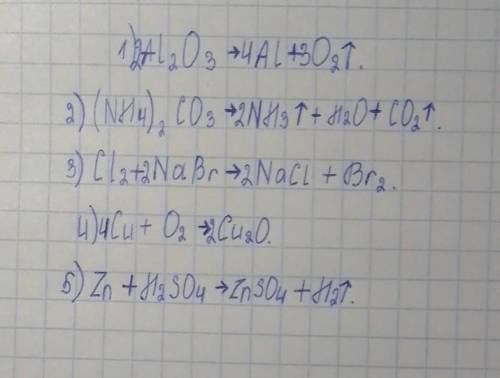 1) 2Al₂O₃ → 4Al + 3O₂↑.
2) (NH4)₂ CO₃ → 2NH₃↑ + H₂O + CO₂↑.
3) Cl₂ + 2NaBr → 2NaCl + Br₂.
4) 4Cu + O₂ → 2Cu₂O.
5) Zn + H₂SO₄ → ZnSO₄ + H₂↑.